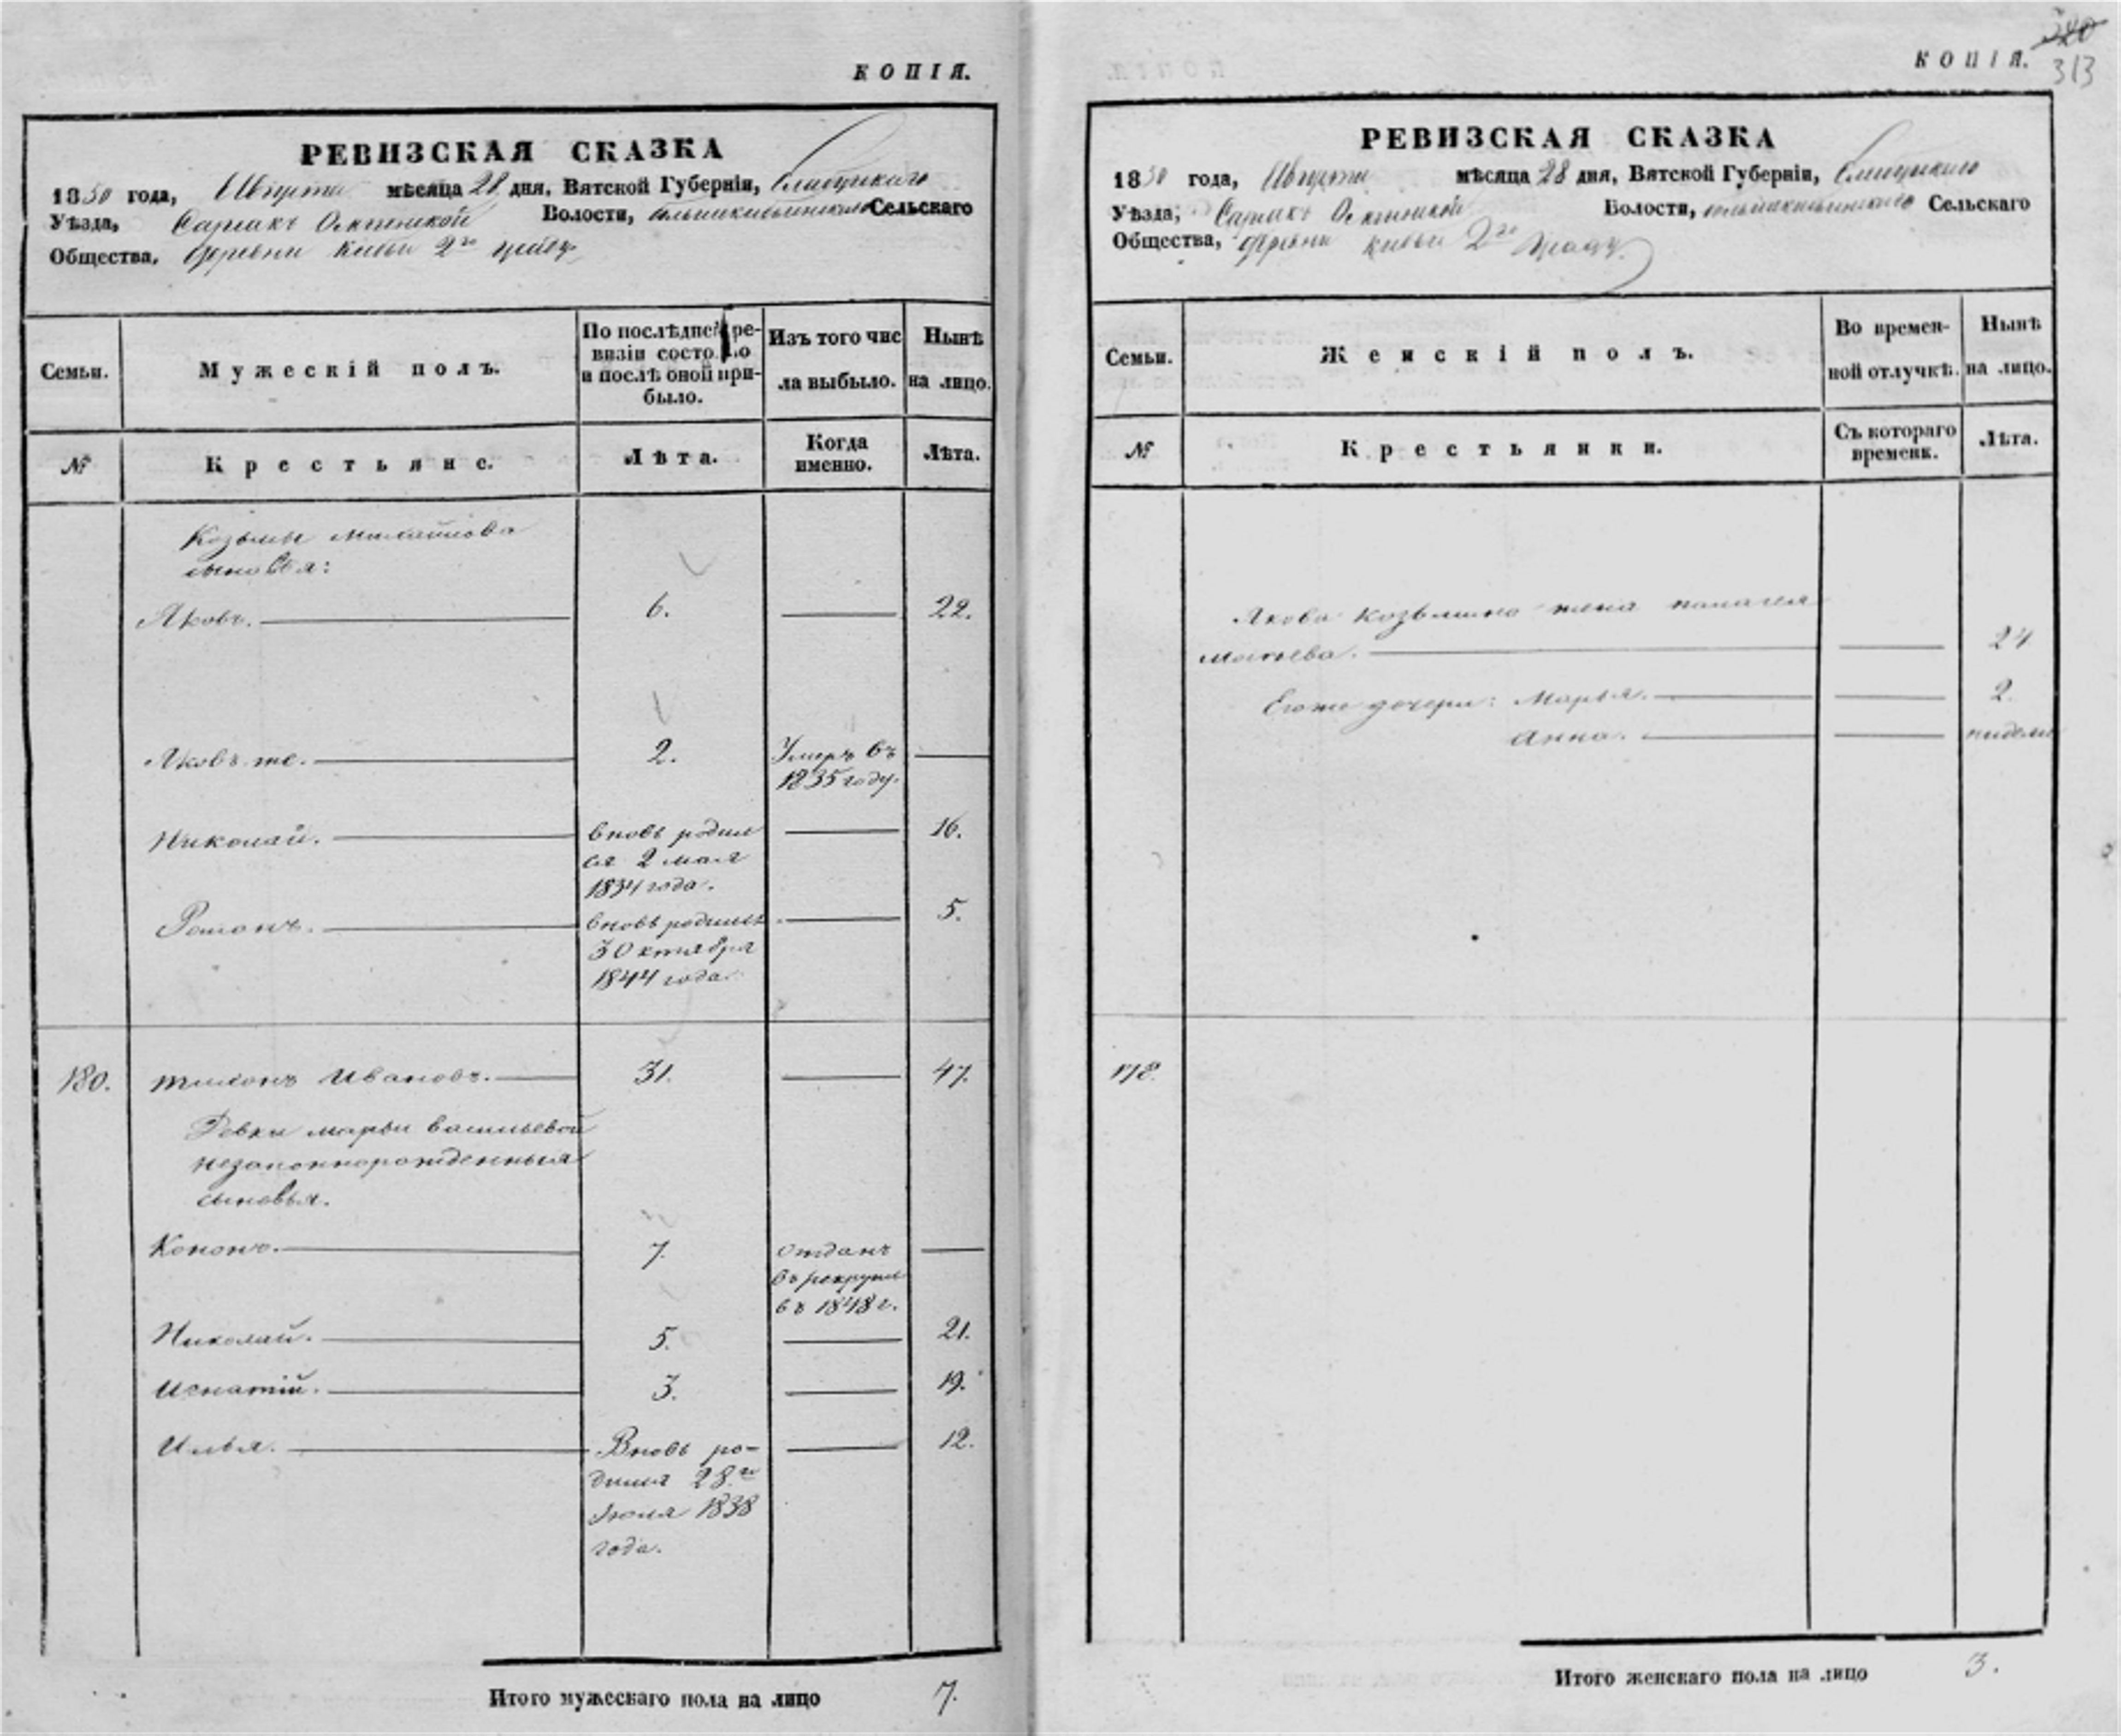 КОПІЯ.
РЕВИЗСКАЯ СКАЗКА
1850 года, Августа мѣсяца 28 дня, Вятской Губерніи,
Уѣзда, Волости, Сельскаго
Общества, деревни 2го
Семьи.
Мужескій полъ.
По послѣдней ре-
визіи состояло
и послѣ оной при-
было.
Изъ того чис
ла выбыло.
Нынѣ
на лицо.
№
Крестьяне.
Лѣта.
Когда
именно.
Лѣта.
Козьмы
сыновья:
Яковъ. 6. 22.
Яковъ же. 2. Умеръ въ
1835 году.
Николай. вновь родил 16.
ся 2 мая
1834 года.
Романъ. вновь родился 5.
30 ктября
1844 года.
180. Тихонъ Ивановъ. 31. 47.
Девки Марьи Васильевой
незаконнорожденныя
сыновья.
Кононъ. 7. отданъ
въ рекруты
въ 1848 г.
Николай. 5. 21.
Игнатій. 3. 19.
Илья. Вновь ро- 12.
дился 28го
Июля 1838
года.
Итого мужескаго пола на лицо 7.
КОПІЯ.
313
РЕВИЗСКАЯ СКАЗКА
1850 года, Августа мѣсяца 28 дня, Вятской Губерніи,
Уѣзда, Волости, Сельскаго
Общества, деревни 2го
Семьи.
Женскій полъ.
Во времен-
ной отлучкѣ.
Нынѣ
на лицо.
№
Крестьянки.
Съ котораго
времени.
Лѣта.
Якова Козьмина жена
24
Егоже дочери: Марья. 2.
Анна. недели
178.
Итого женскаго пола на лицо 3.